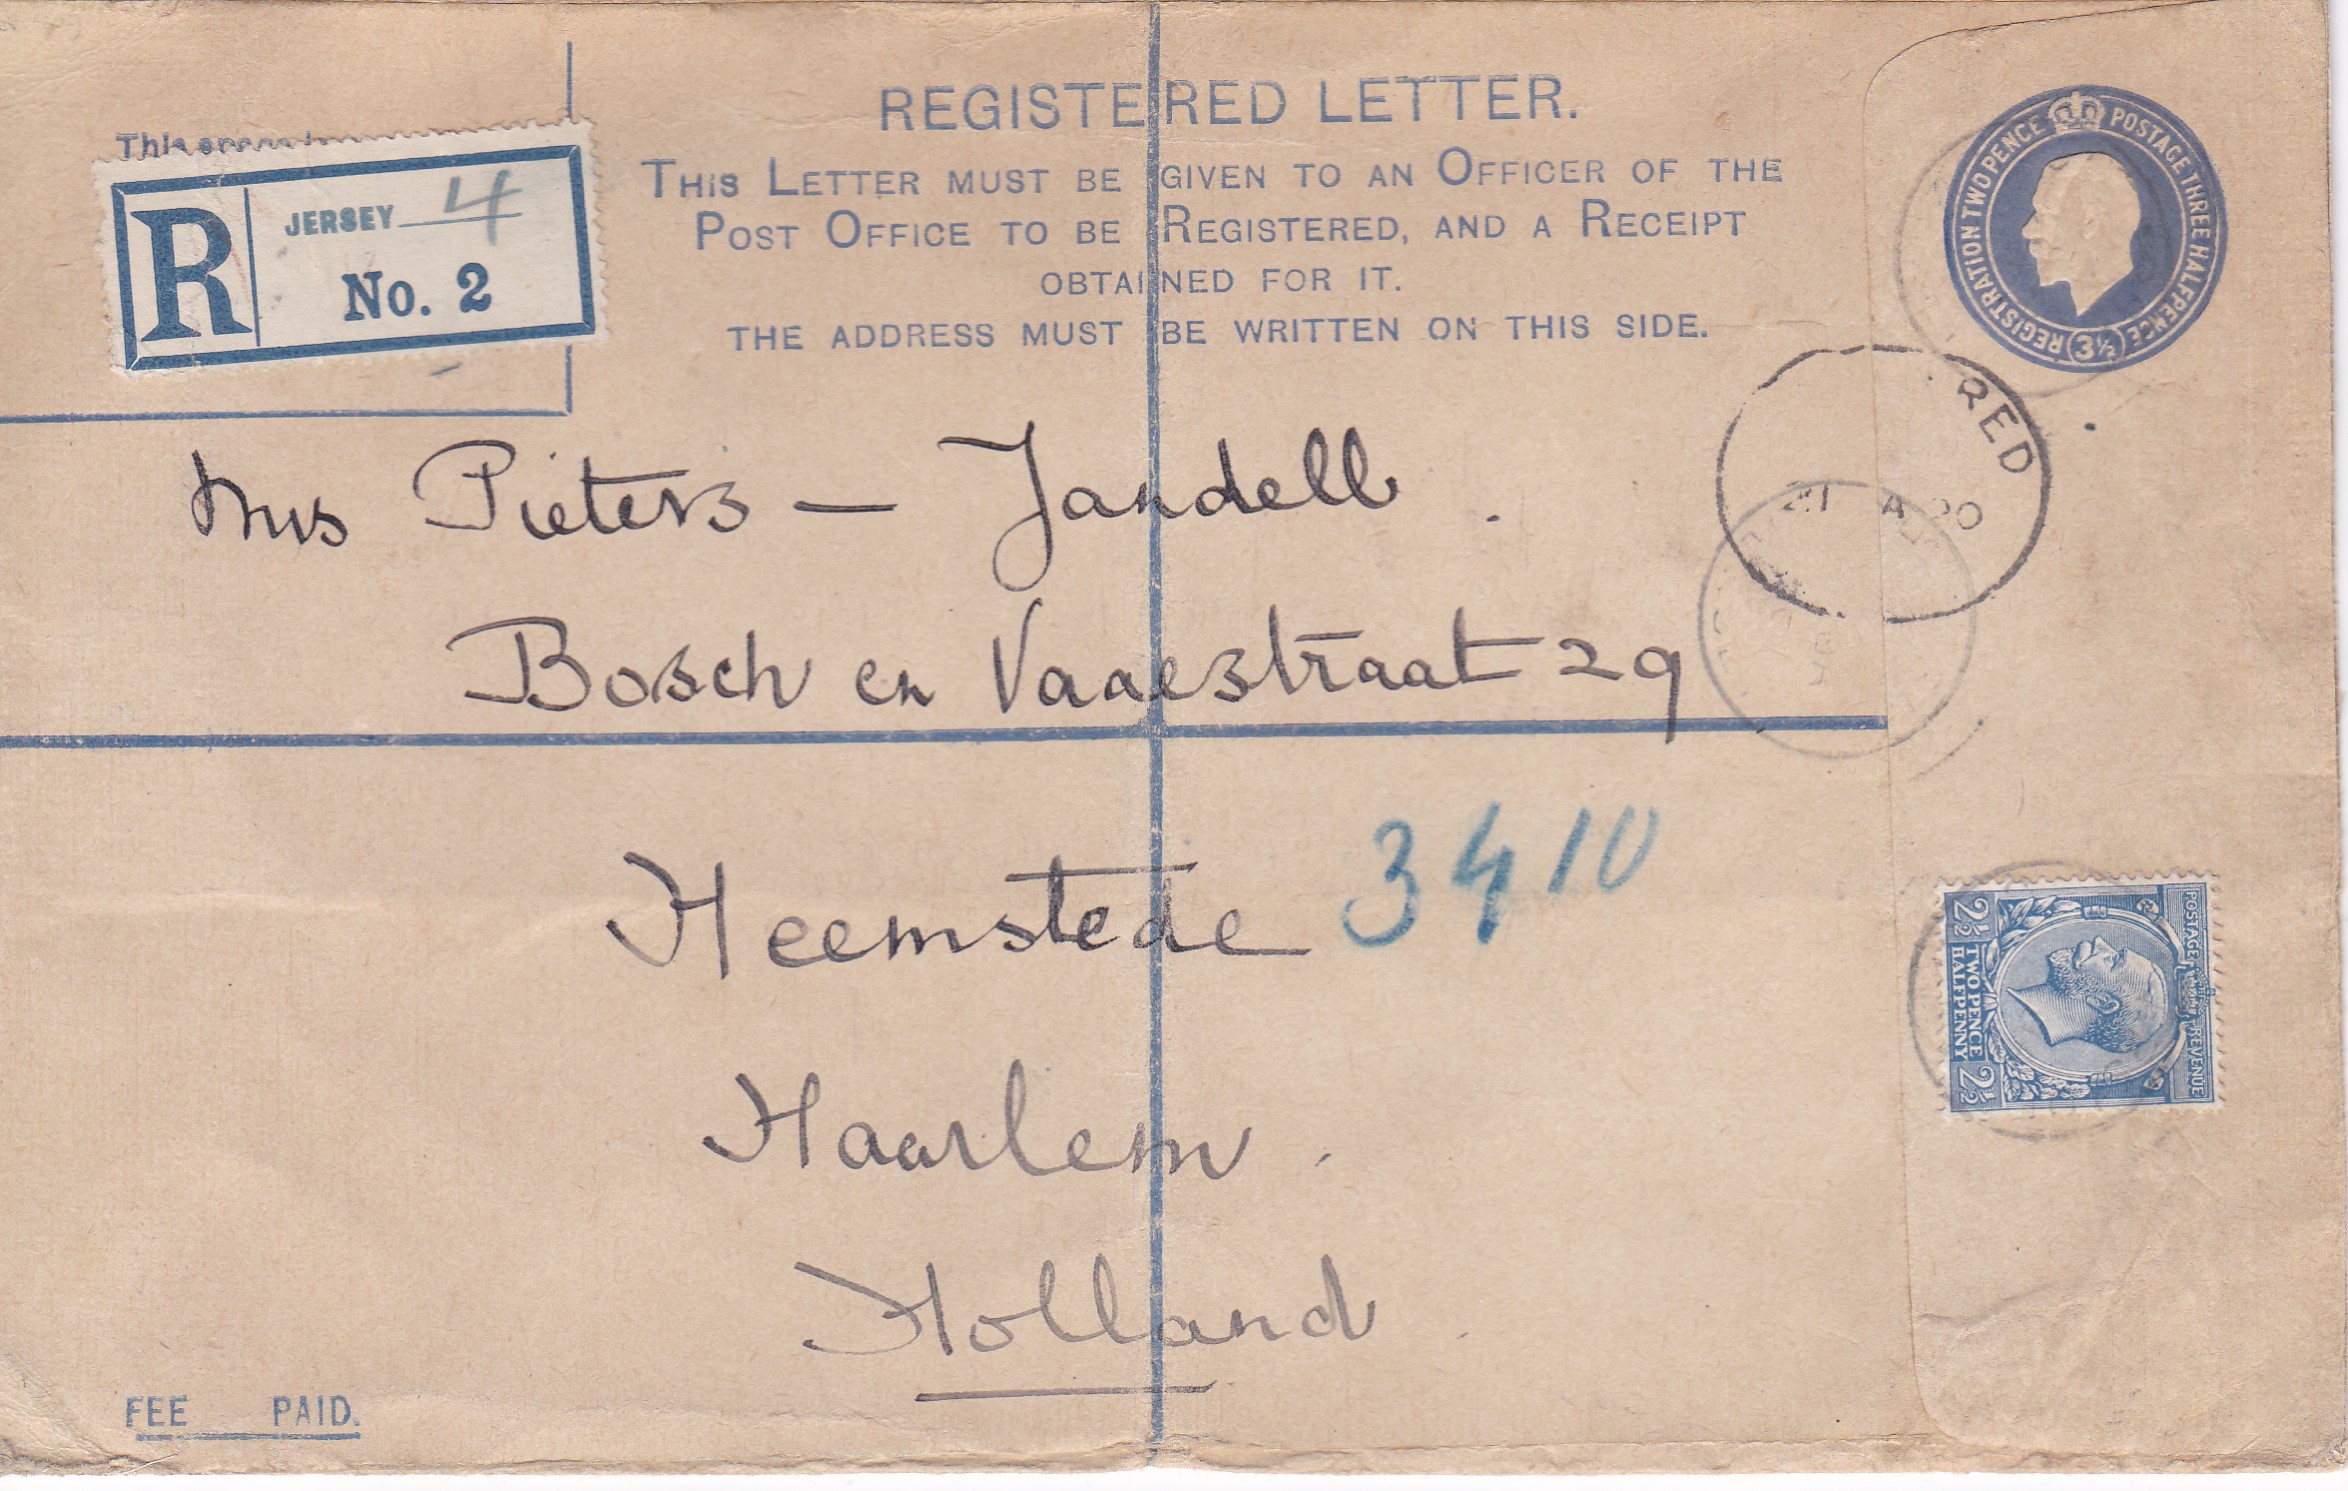 REGISTERED LETTER.
THIS LETTER MUST BE GIVEN TO AN OFFICER OF THE
POST OFFICE TO BE REGISTERED, AND A RECEIPT
OBTAINED FOR IT.
THE ADDRESS MUST BE WRITTEN ON THIS SIDE.
This space
R
JERSEY 4
No. 2
REGISTRATION TWO PENCE POSTAGE THREE HALFPENCE
3½
RED
21 A 20
Mrs Pieters - Jandell.
Bosch en Vaaestraat 29
Heemstede
3410
Haarlem.
Holland.
POSTAGE REVENUE
2½ TWO PENCE HALFPENNY 2½
FEE PAID.